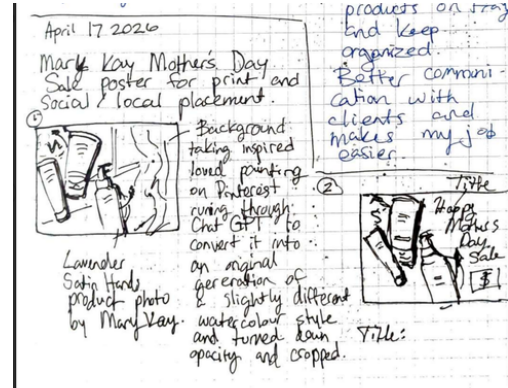 April 17 2026
Mary Kay Mother's Day
Sale poster for print and
social / local placement.
①
Background:
taking inspired
loved painting
on Pinterest
runing through
Chat GPT to
convert it into
an original
generation of
a slightly different
watercolour style
and turned down
opacity and cropped.
Lavender
Satin Hands
product photo
by Mary Kay.
products on tray
and keep
organized.
Better communi-
cation with
clients and
makes my job
easier.
②
Title
Happy
Mothers
Day
Sale
$
Title: